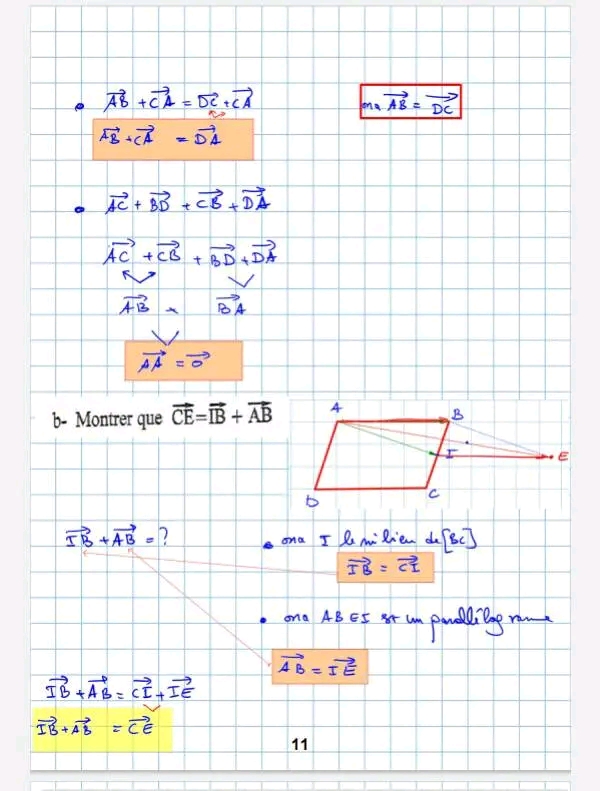 • AB⃗ + CA⃗ = DC⃗ + CA⃗
ona AB⃗ = DC⃗
AB⃗ + CA⃗ = DA⃗
• AC⃗ + BD⃗ + CB⃗ + DA⃗
AC⃗ + CB⃗ + BD⃗ + DA⃗
AB⃗ + BA⃗
AA⃗ = 0⃗
b- Montrer que CE⃗=IB⃗ + AB⃗
A
B
I
E
D
C
IB⃗ + AB⃗ = ?
• ona I le milieu de [BC]
IB⃗ = CI⃗
• ona ABEI est un parallélogramme
AB⃗ = IE⃗
IB⃗ + AB⃗ = CI⃗ + IE⃗
IB⃗ + AB⃗ = CE⃗
11